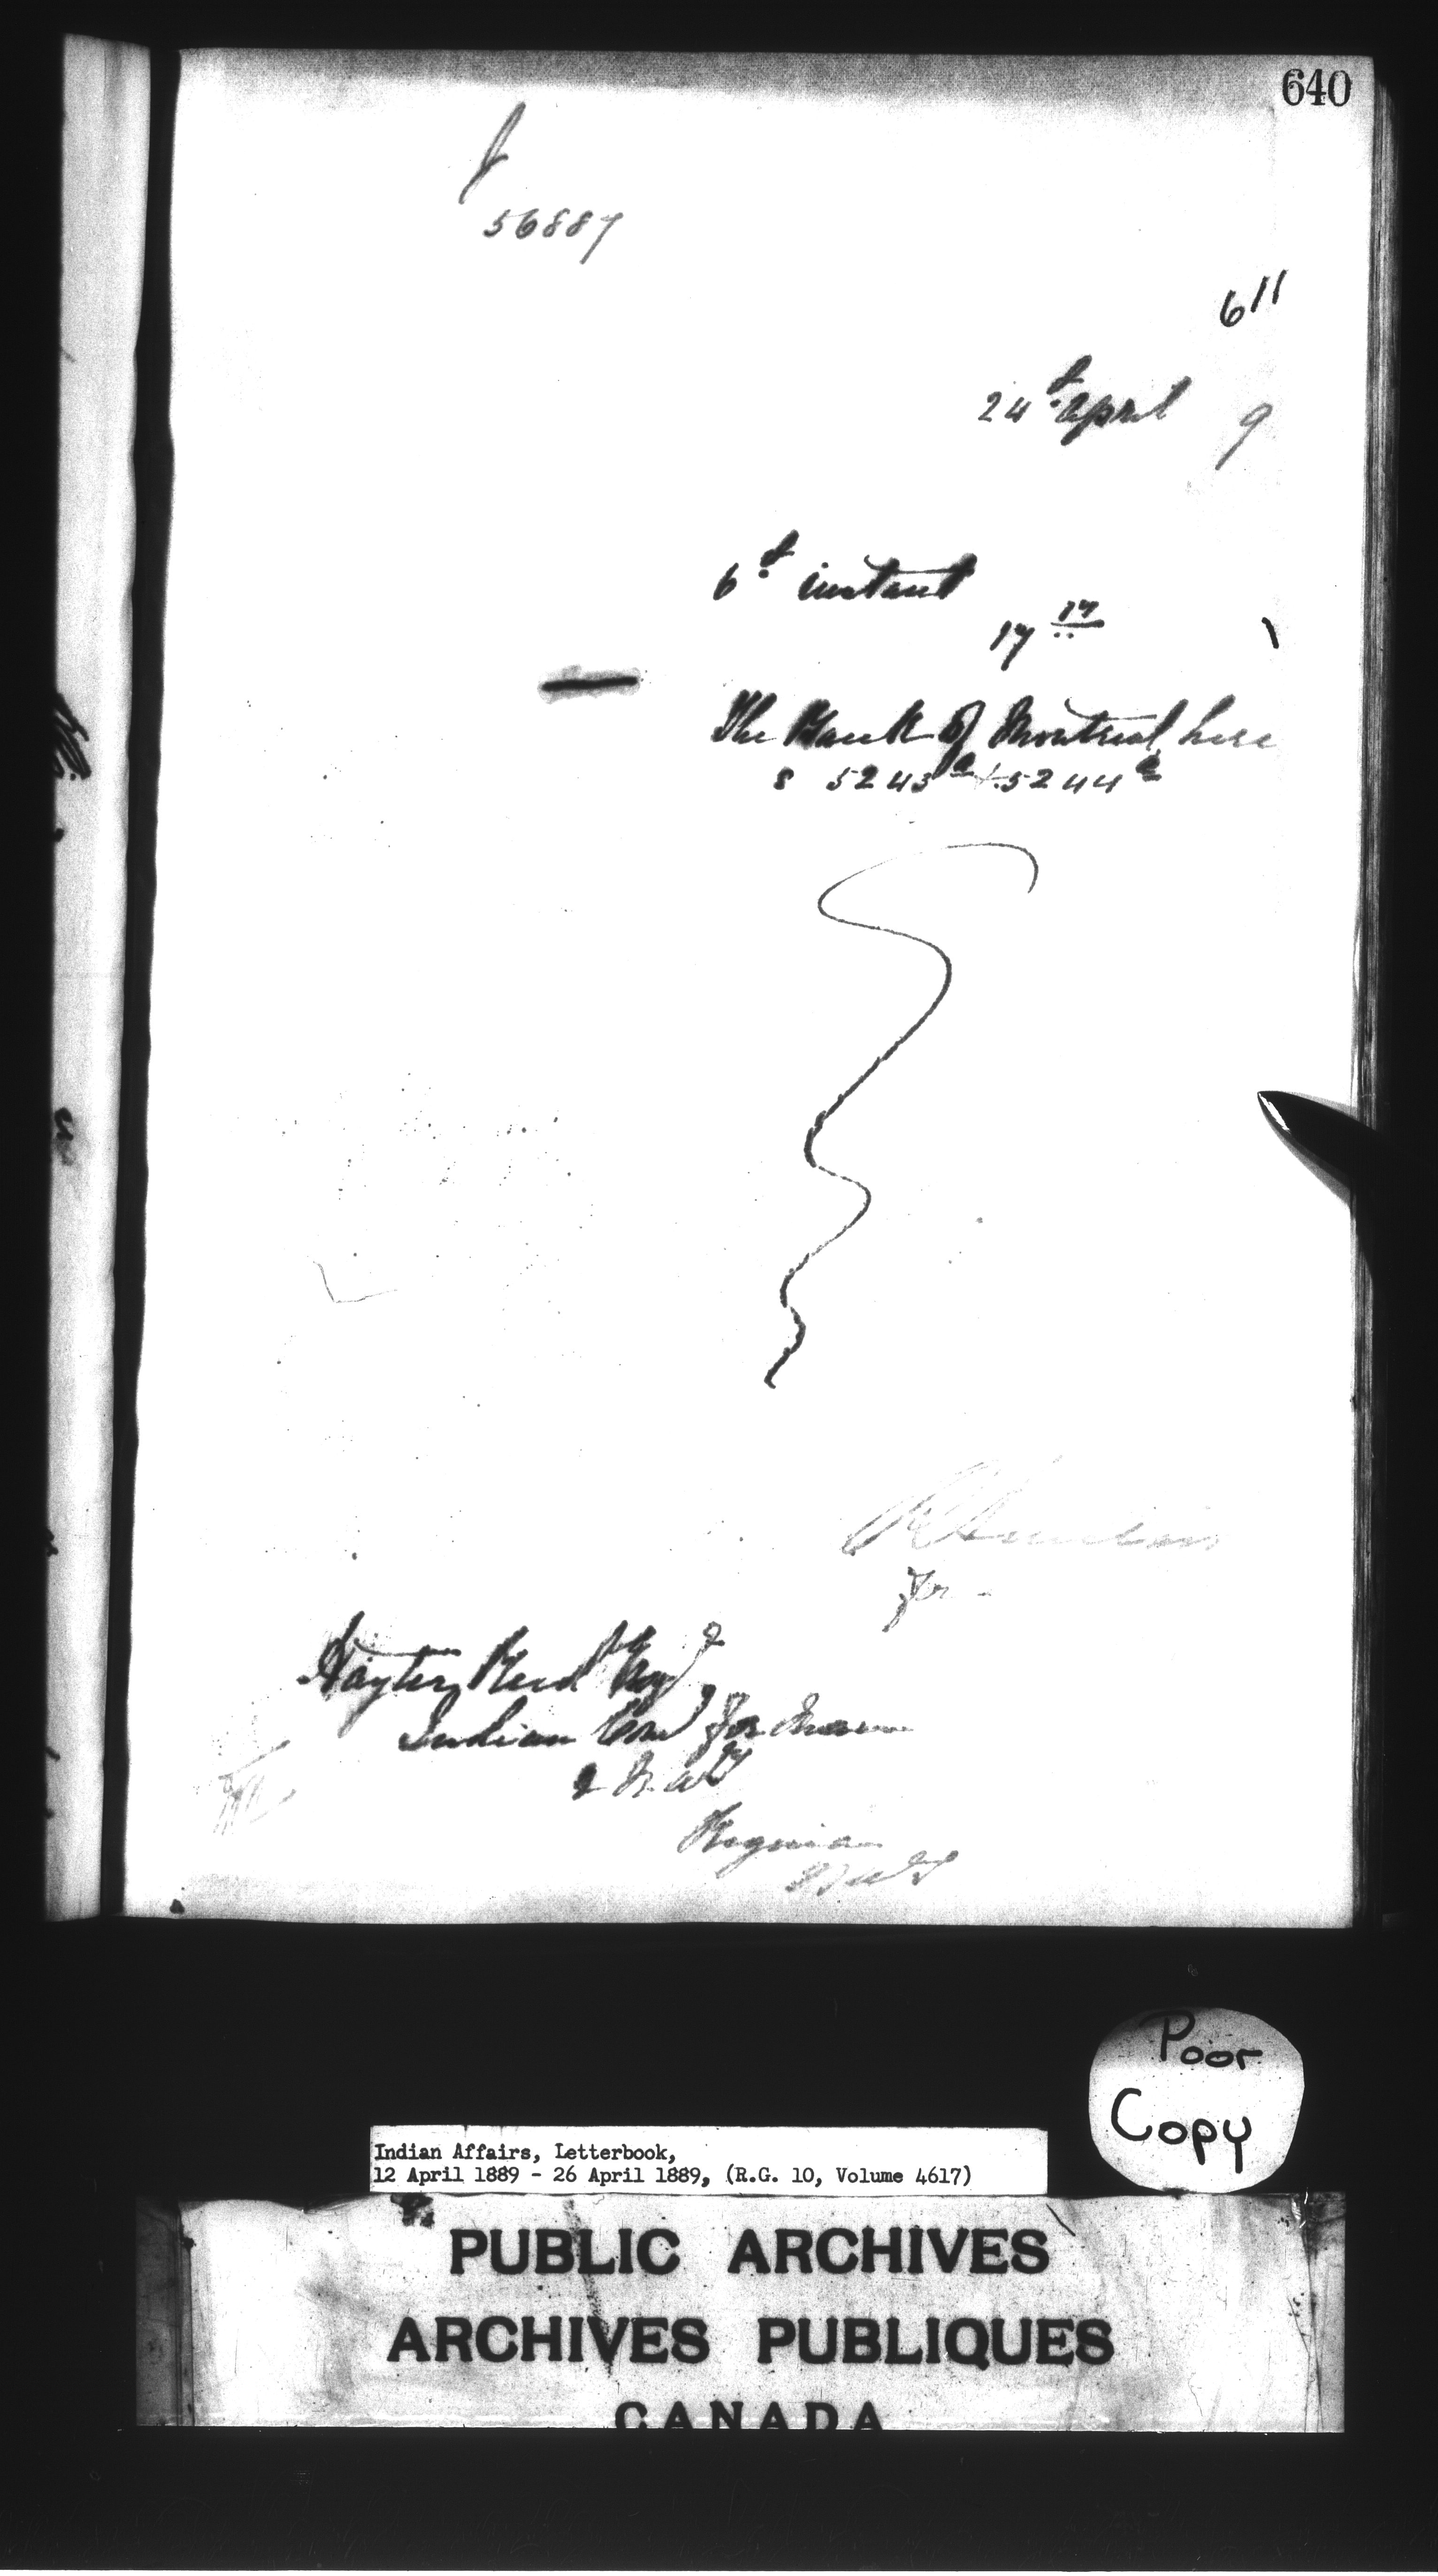 640
J
56887
611
24th April 9
6th instant
17 17
The Bank of Montreal here
s 5243a + 5244a
for
Hayter Reed Esqr
Indian Comr for
& N.W.T
Regina
N.W.T
Poor
Copy
Indian Affairs, Letterbook,
12 April 1889 - 26 April 1889, (R.G. 10, Volume 4617)
PUBLIC ARCHIVES
ARCHIVES PUBLIQUES
CANADA